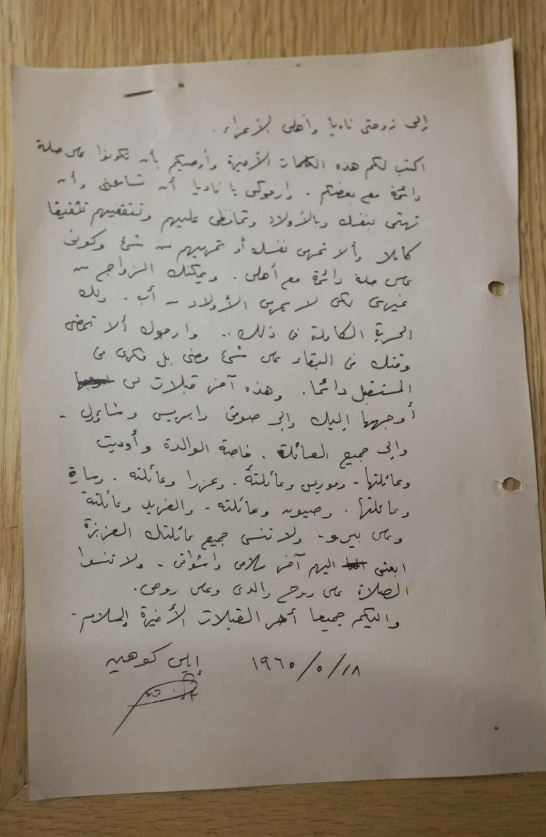 إلى زوجتي ناديا وأهلي الأعزاء.
اكتب لكم هذه الكلمات الأخيرة وأوصيكم بأن تكونوا على صلة
دائمة مع بعضكم. وارجوكي يا ناديا أن تسامحيني وأن
تهتمي بنفسك وبالأولاد وتحافظي عليهم وتثقفيهم تثقيفا
كاملا وألا تحرمي نفسك أو تحرميهم من شئ وكوني
على صلة دائمة مع أهلي. ويمكنك الزواج من
غيري لكي لا يحرمن الأولاد من أب. ولك
الحرية الكاملة في ذلك. وارجوك ألا تمضي
وقتك في البكاء على شئ مضى بل فكري في
المستقبل دائما. وهذه آخر قبلات لي
أوجهها إليك وإلى صوفي وايريس وشاؤل -
وإلى جميع العائلة. خاصة الوالدة وأوديت
وعائلتها - وموريس وعائلته. وعزرا وعائلته. وسارة
وعائلتها. وصيون وعائلته - والفريد وعائلته
وعلى بيرو - ولا تنسي جميع عائلتك العزيزة
ابعثي اليهم آخر سلامي وأشواقي - ولا تنسوا
الصلاة على روح والدي وعلى روحي.
واليكم جميعا آخر القبلات الأخيرة والسلام -
١٩٦٥/٥/١٨ إيلي كوهين